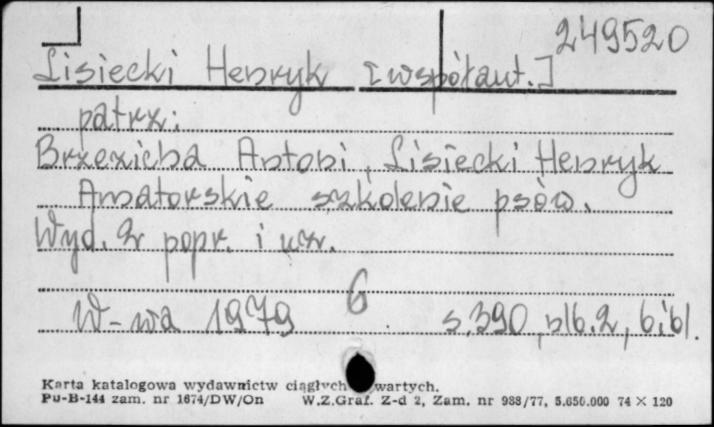 249520
Lisiecki Henryk [współaut.]
patrz:
Brzezicha Antoni, Lisiecki Henryk
Amatorskie szkolenie psów.
Wyd. 2 popr. i uzup.
6
W-wa 1979 s. 390, nlb. 2, bibl.
Karta katalogowa wydawnictw ciągłych wartych.
Pu-B-144 zam. nr 1674/DW/On W.Z.Graf. Z-d 2, Zam. nr 988/77, 5.650.000 74 × 120